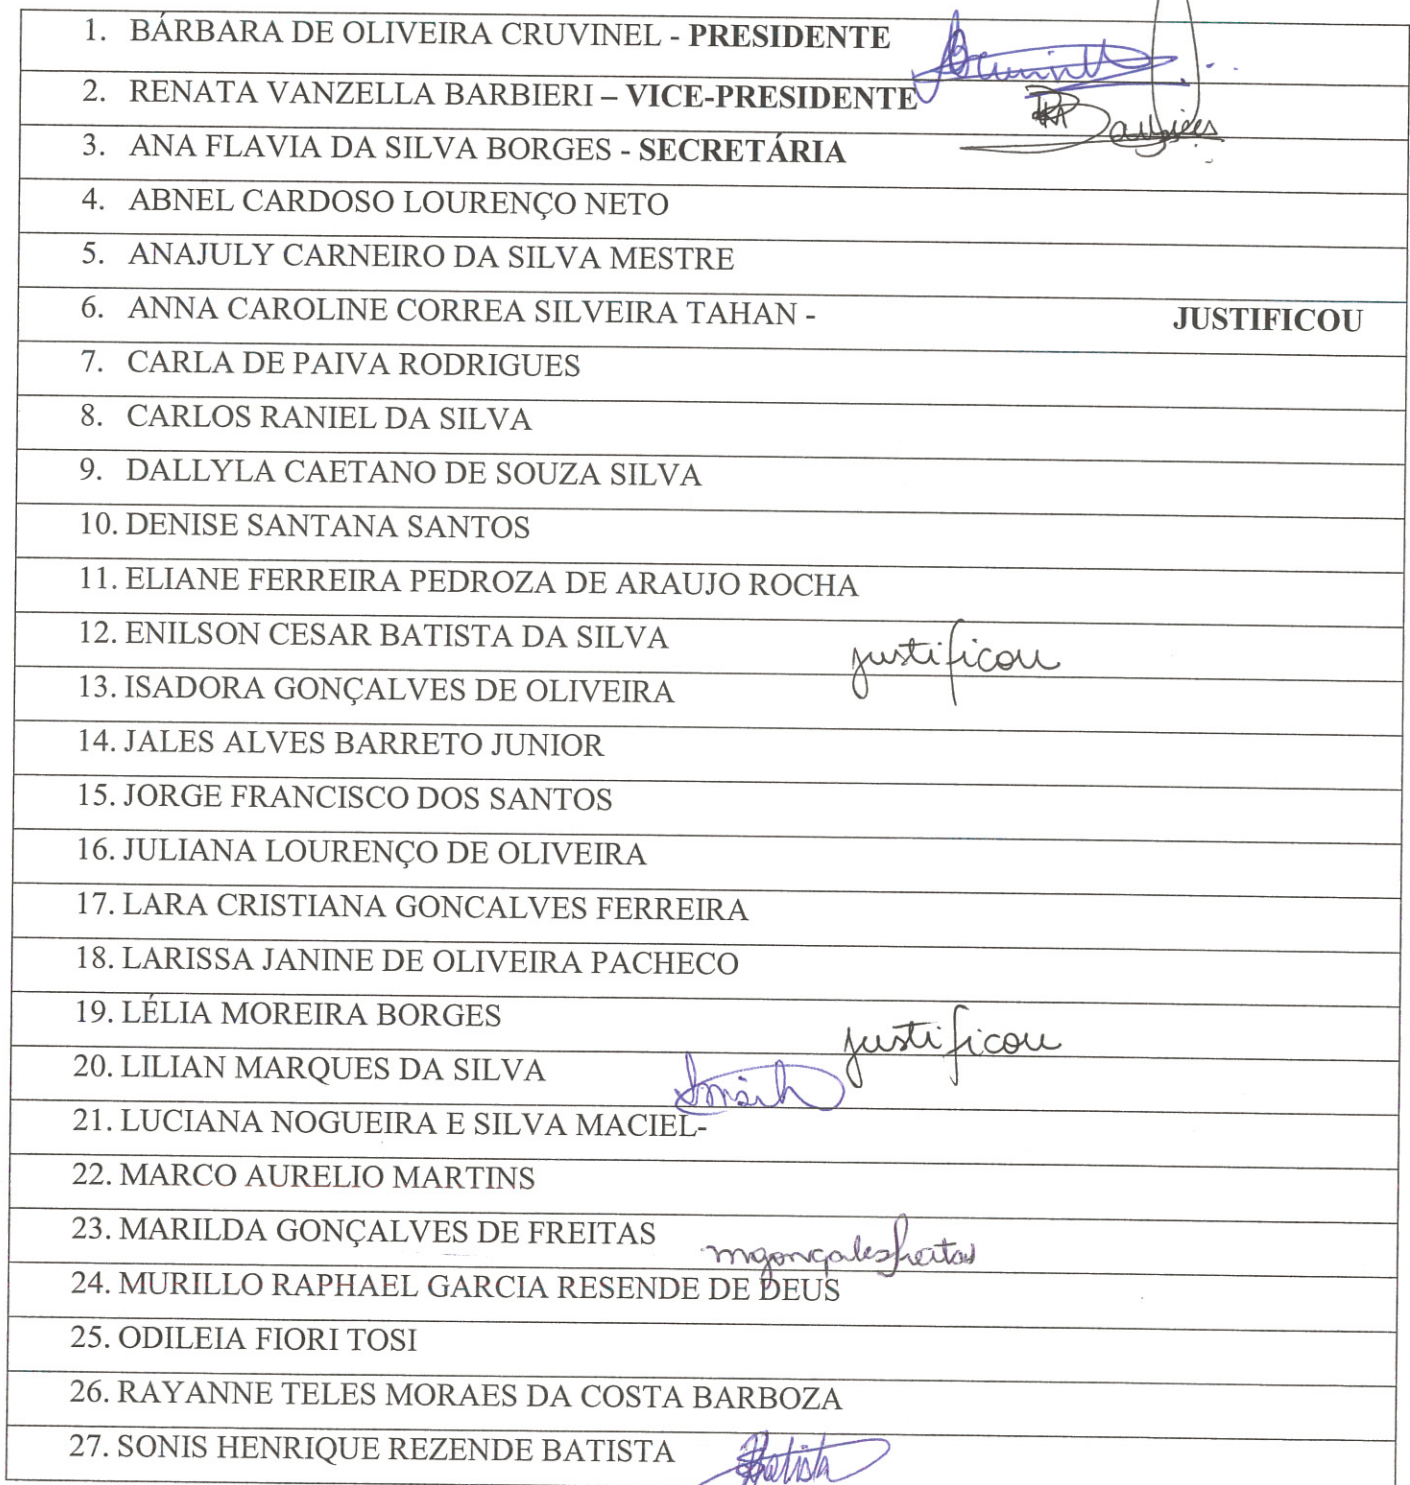 1. BÁRBARA DE OLIVEIRA CRUVINEL - PRESIDENTE
2. RENATA VANZELLA BARBIERI – VICE-PRESIDENTE
3. ANA FLAVIA DA SILVA BORGES - SECRETÁRIA
4. ABNEL CARDOSO LOURENÇO NETO
5. ANAJULY CARNEIRO DA SILVA MESTRE
6. ANNA CAROLINE CORREA SILVEIRA TAHAN - JUSTIFICOU
7. CARLA DE PAIVA RODRIGUES
8. CARLOS RANIEL DA SILVA
9. DALLYLA CAETANO DE SOUZA SILVA
10. DENISE SANTANA SANTOS
11. ELIANE FERREIRA PEDROZA DE ARAUJO ROCHA
12. ENILSON CESAR BATISTA DA SILVA justificou
13. ISADORA GONÇALVES DE OLIVEIRA
14. JALES ALVES BARRETO JUNIOR
15. JORGE FRANCISCO DOS SANTOS
16. JULIANA LOURENÇO DE OLIVEIRA
17. LARA CRISTIANA GONCALVES FERREIRA
18. LARISSA JANINE DE OLIVEIRA PACHECO
19. LÉLIA MOREIRA BORGES justificou
20. LILIAN MARQUES DA SILVA
21. LUCIANA NOGUEIRA E SILVA MACIEL-
22. MARCO AURELIO MARTINS
23. MARILDA GONÇALVES DE FREITAS
24. MURILLO RAPHAEL GARCIA RESENDE DE DEUS
25. ODILEIA FIORI TOSI
26. RAYANNE TELES MORAES DA COSTA BARBOZA
27. SONIS HENRIQUE REZENDE BATISTA Batista